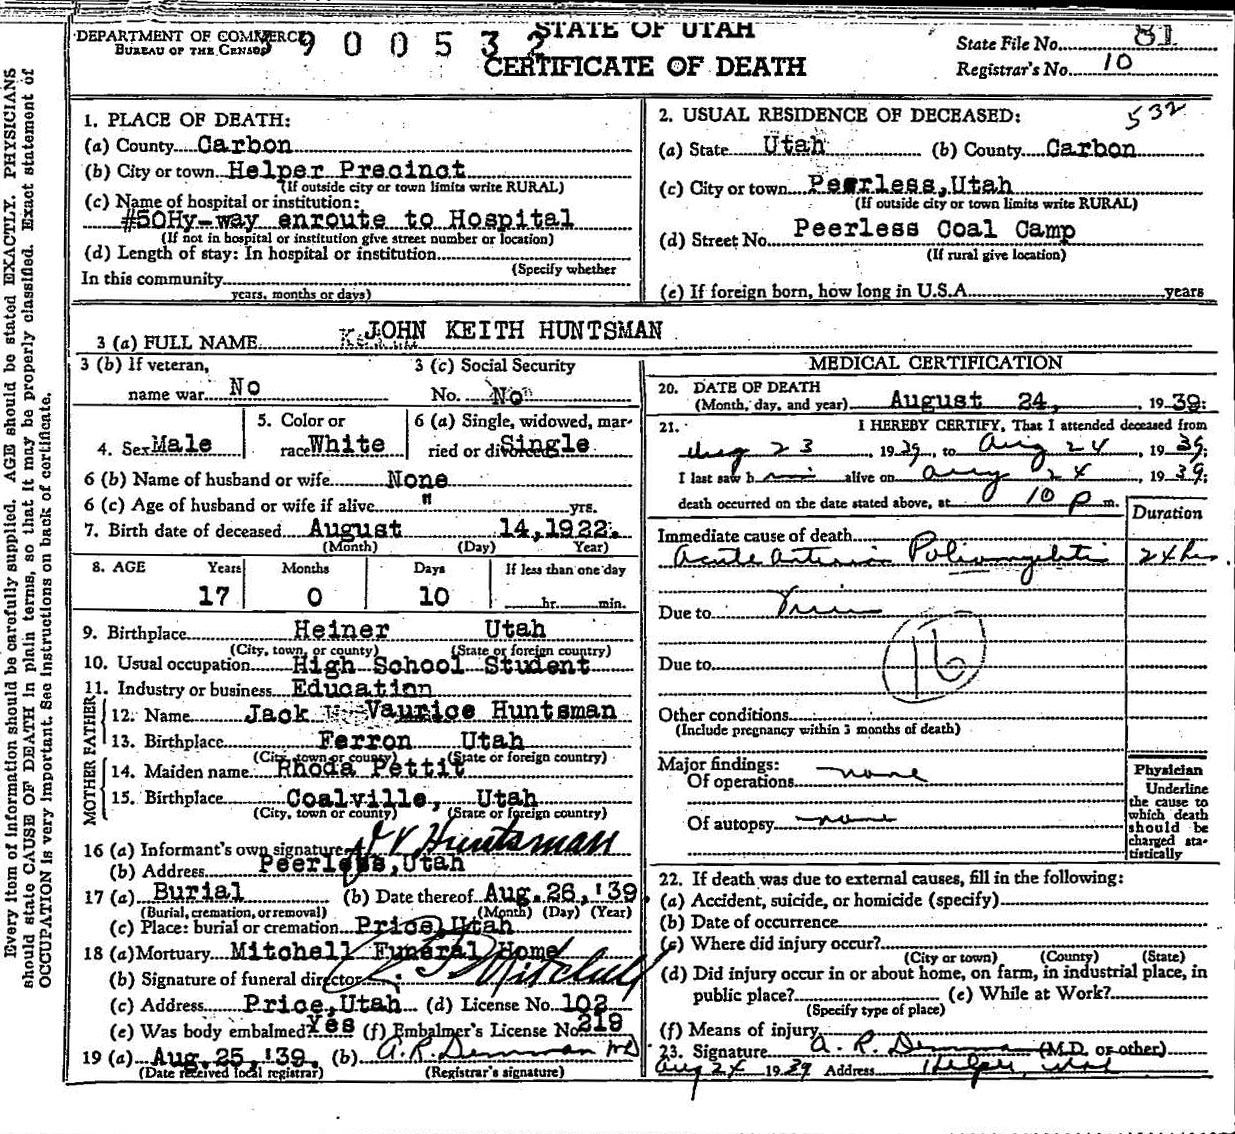 DEPARTMENT OF COMMERCE
BUREAU OF THE CENSUS
3900532
STATE OF UTAH
CERTIFICATE OF DEATH
State File No. 81
Registrar's No. 10
532
Every item of information should be carefully supplied. AGE should be stated EXACTLY. PHYSICIANS
should state CAUSE OF DEATH in plain terms, so that it may be properly classified. Exact statement of
OCCUPATION is very important. See instructions on back of certificate.
1. PLACE OF DEATH:
(a) County Carbon
(b) City or town Helper Precinct
(If outside city or town limits write RURAL)
(c) Name of hospital or institution:
#50Hy-way enroute to Hospital
(If not in hospital or institution give street number or location)
(d) Length of stay: In hospital or institution
(Specify whether
In this community
years, months or days)
2. USUAL RESIDENCE OF DECEASED:
(a) State Utah (b) County Carbon
(c) City or town Peerless,Utah
(If outside city or town limits write RURAL)
(d) Street No. Peerless Coal Camp
(If rural give location)
(e) If foreign born, how long in U.S.A. years
3 (a) FULL NAME JOHN KEITH HUNTSMAN
3 (b) If veteran,
name war No
3 (c) Social Security
No. No
4. Sex Male
5. Color or
race White
6 (a) Single, widowed, mar-
ried or divorced Single
6 (b) Name of husband or wife None
6 (c) Age of husband or wife if alive " yrs.
7. Birth date of deceased August 14,1922.
(Month) (Day) Year)
8. AGE Years Months Days If less than one day
17 0 10 hr. min.
9. Birthplace Heiner Utah
(City, town, or county) (State or foreign country)
10. Usual occupation High School Student
11. Industry or business Education
FATHER
12. Name Jack Vaurice Huntsman
13. Birthplace Ferron Utah
(City, town or county) (State or foreign country)
MOTHER
14. Maiden name Rhoda Pettit
15. Birthplace Coalville, Utah
(City, town or county) (State or foreign country)
16 (a) Informant's own signature J V Huntsman
(b) Address Peerless,Utah
17 (a) Burial (b) Date thereof Aug.26,'39
(Burial, cremation, or removal) (Month) (Day) (Year)
(c) Place: burial or cremation Price,Utah
18 (a) Mortuary Mitchell Funeral Home
(b) Signature of funeral director Mitchell
(c) Address Price,Utah (d) License No. 102
(e) Was body embalmed? Yes (f) Embalmer's License No. 219
19 (a) Aug.25,'39. (b) A. R. Demman MD
(Date received local registrar) (Registrar's signature)
MEDICAL CERTIFICATION
20. DATE OF DEATH
(Month, day, and year) August 24, , 1939:
21. I HEREBY CERTIFY, That I attended deceased from
Aug 23 , 1939, to Aug 24 , 1939;
I last saw him alive on Aug 24 , 1939;
death occurred on the date stated above, at 10 P m.
Duration
Immediate cause of death
Acute Anterior Poliomyelitis 24 hrs.
Due to Virus
16
Due to
Other conditions
(Include pregnancy within 3 months of death)
Major findings:
Of operations none
Of autopsy none
Physician
Underline
the cause to
which death
should be
charged sta-
tistically
22. If death was due to external causes, fill in the following:
(a) Accident, suicide, or homicide (specify)
(b) Date of occurrence
(c) Where did injury occur?
(City or town) (County) (State)
(d) Did injury occur in or about home, on farm, in industrial place, in
public place? (e) While at Work?
(Specify type of place)
(f) Means of injury
23. Signature A. R. Demman (M.D. or other)
Aug 24 1939 Address Helper, Utah